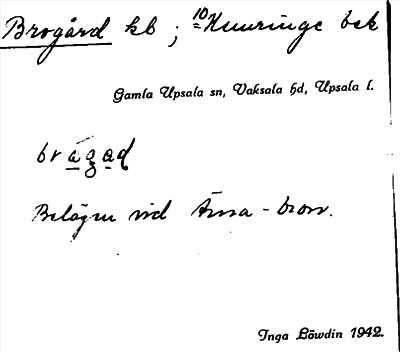 Brogård kb ; 10 Knuringe bek
Gamla Upsala sn, Vaksala hd, Upsala l.
brågad
Belägen vid Ärna - bron.
Inga Löwdin 1942.